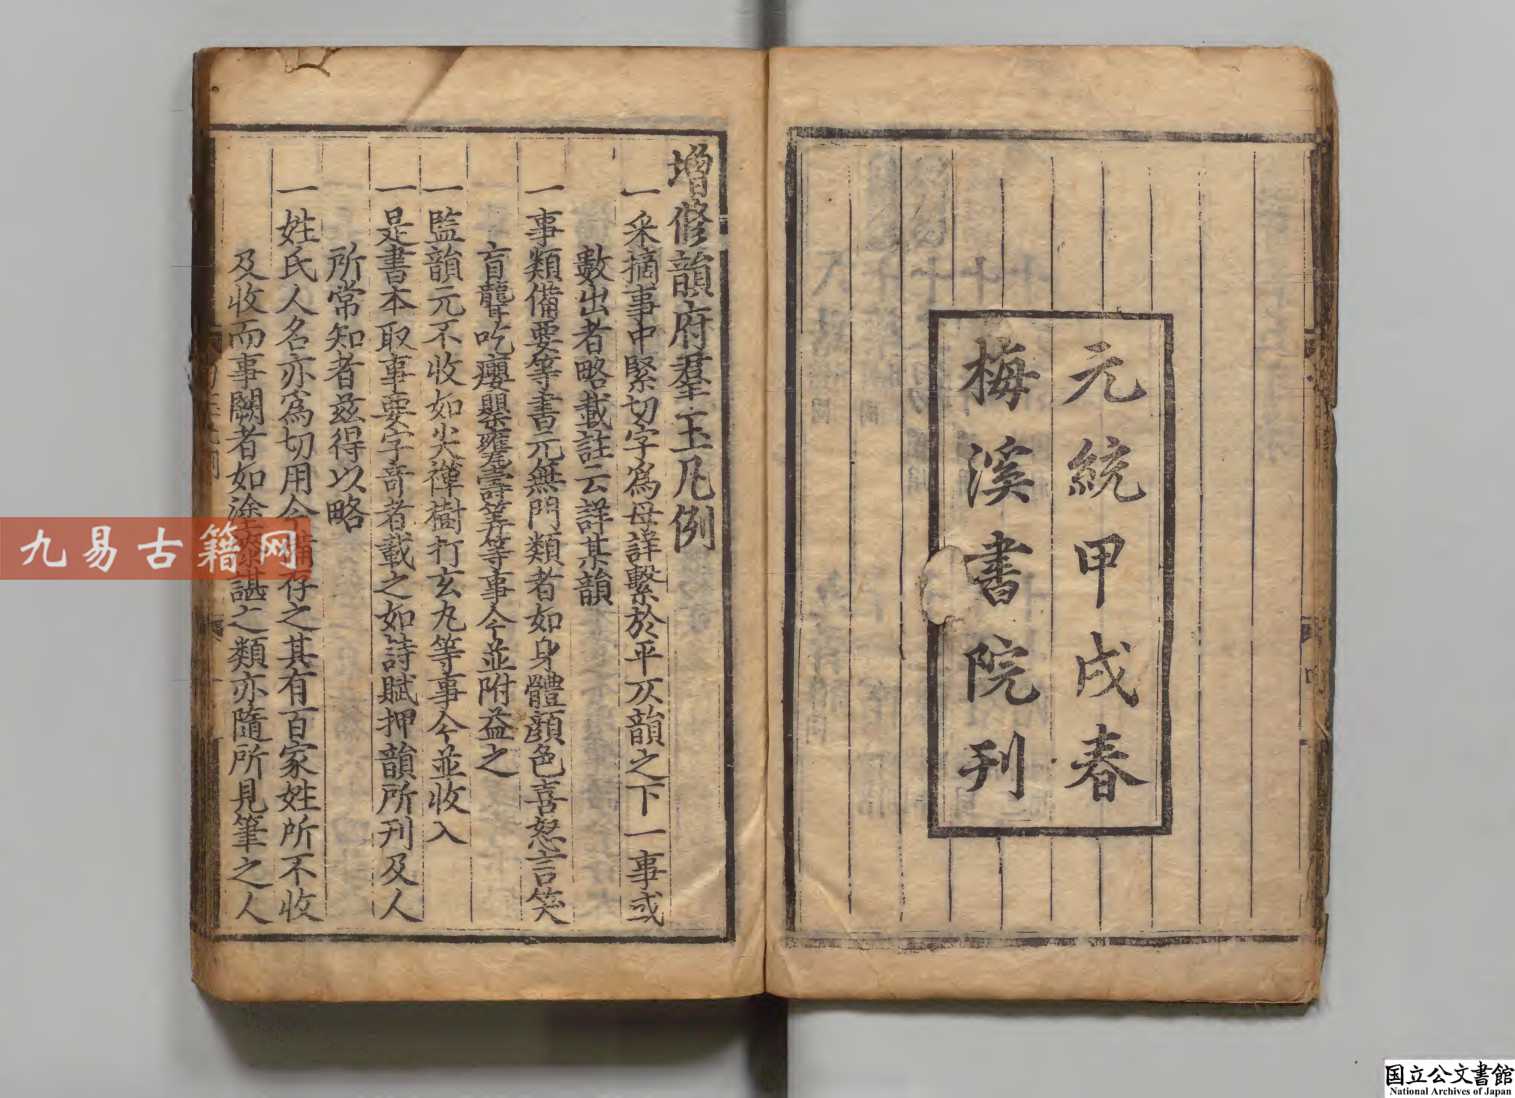 元統甲戌春
梅溪書院刊
增修韻府羣玉凡例
一采摘事中緊切字爲母詳繫於平仄韻之下一事或
數出者略載註云詳某韻
一事類備要等書元無門類者如身體顔色喜怒言笑
盲聾吃癭嬰孺壽筭等事今並附益之
一監韻元不收如尖禪樹打玄丸等事今並收入
一是書本取事要字奇者載之如詩賦押韻所刊及人
所常知者茲得以略
一姓氏人名亦爲切用今補存之其有百家姓所不收
及收而事闕者如涂諶之類亦隨所見筆之人
九易古籍网
国立公文書館
National Archives of Japan